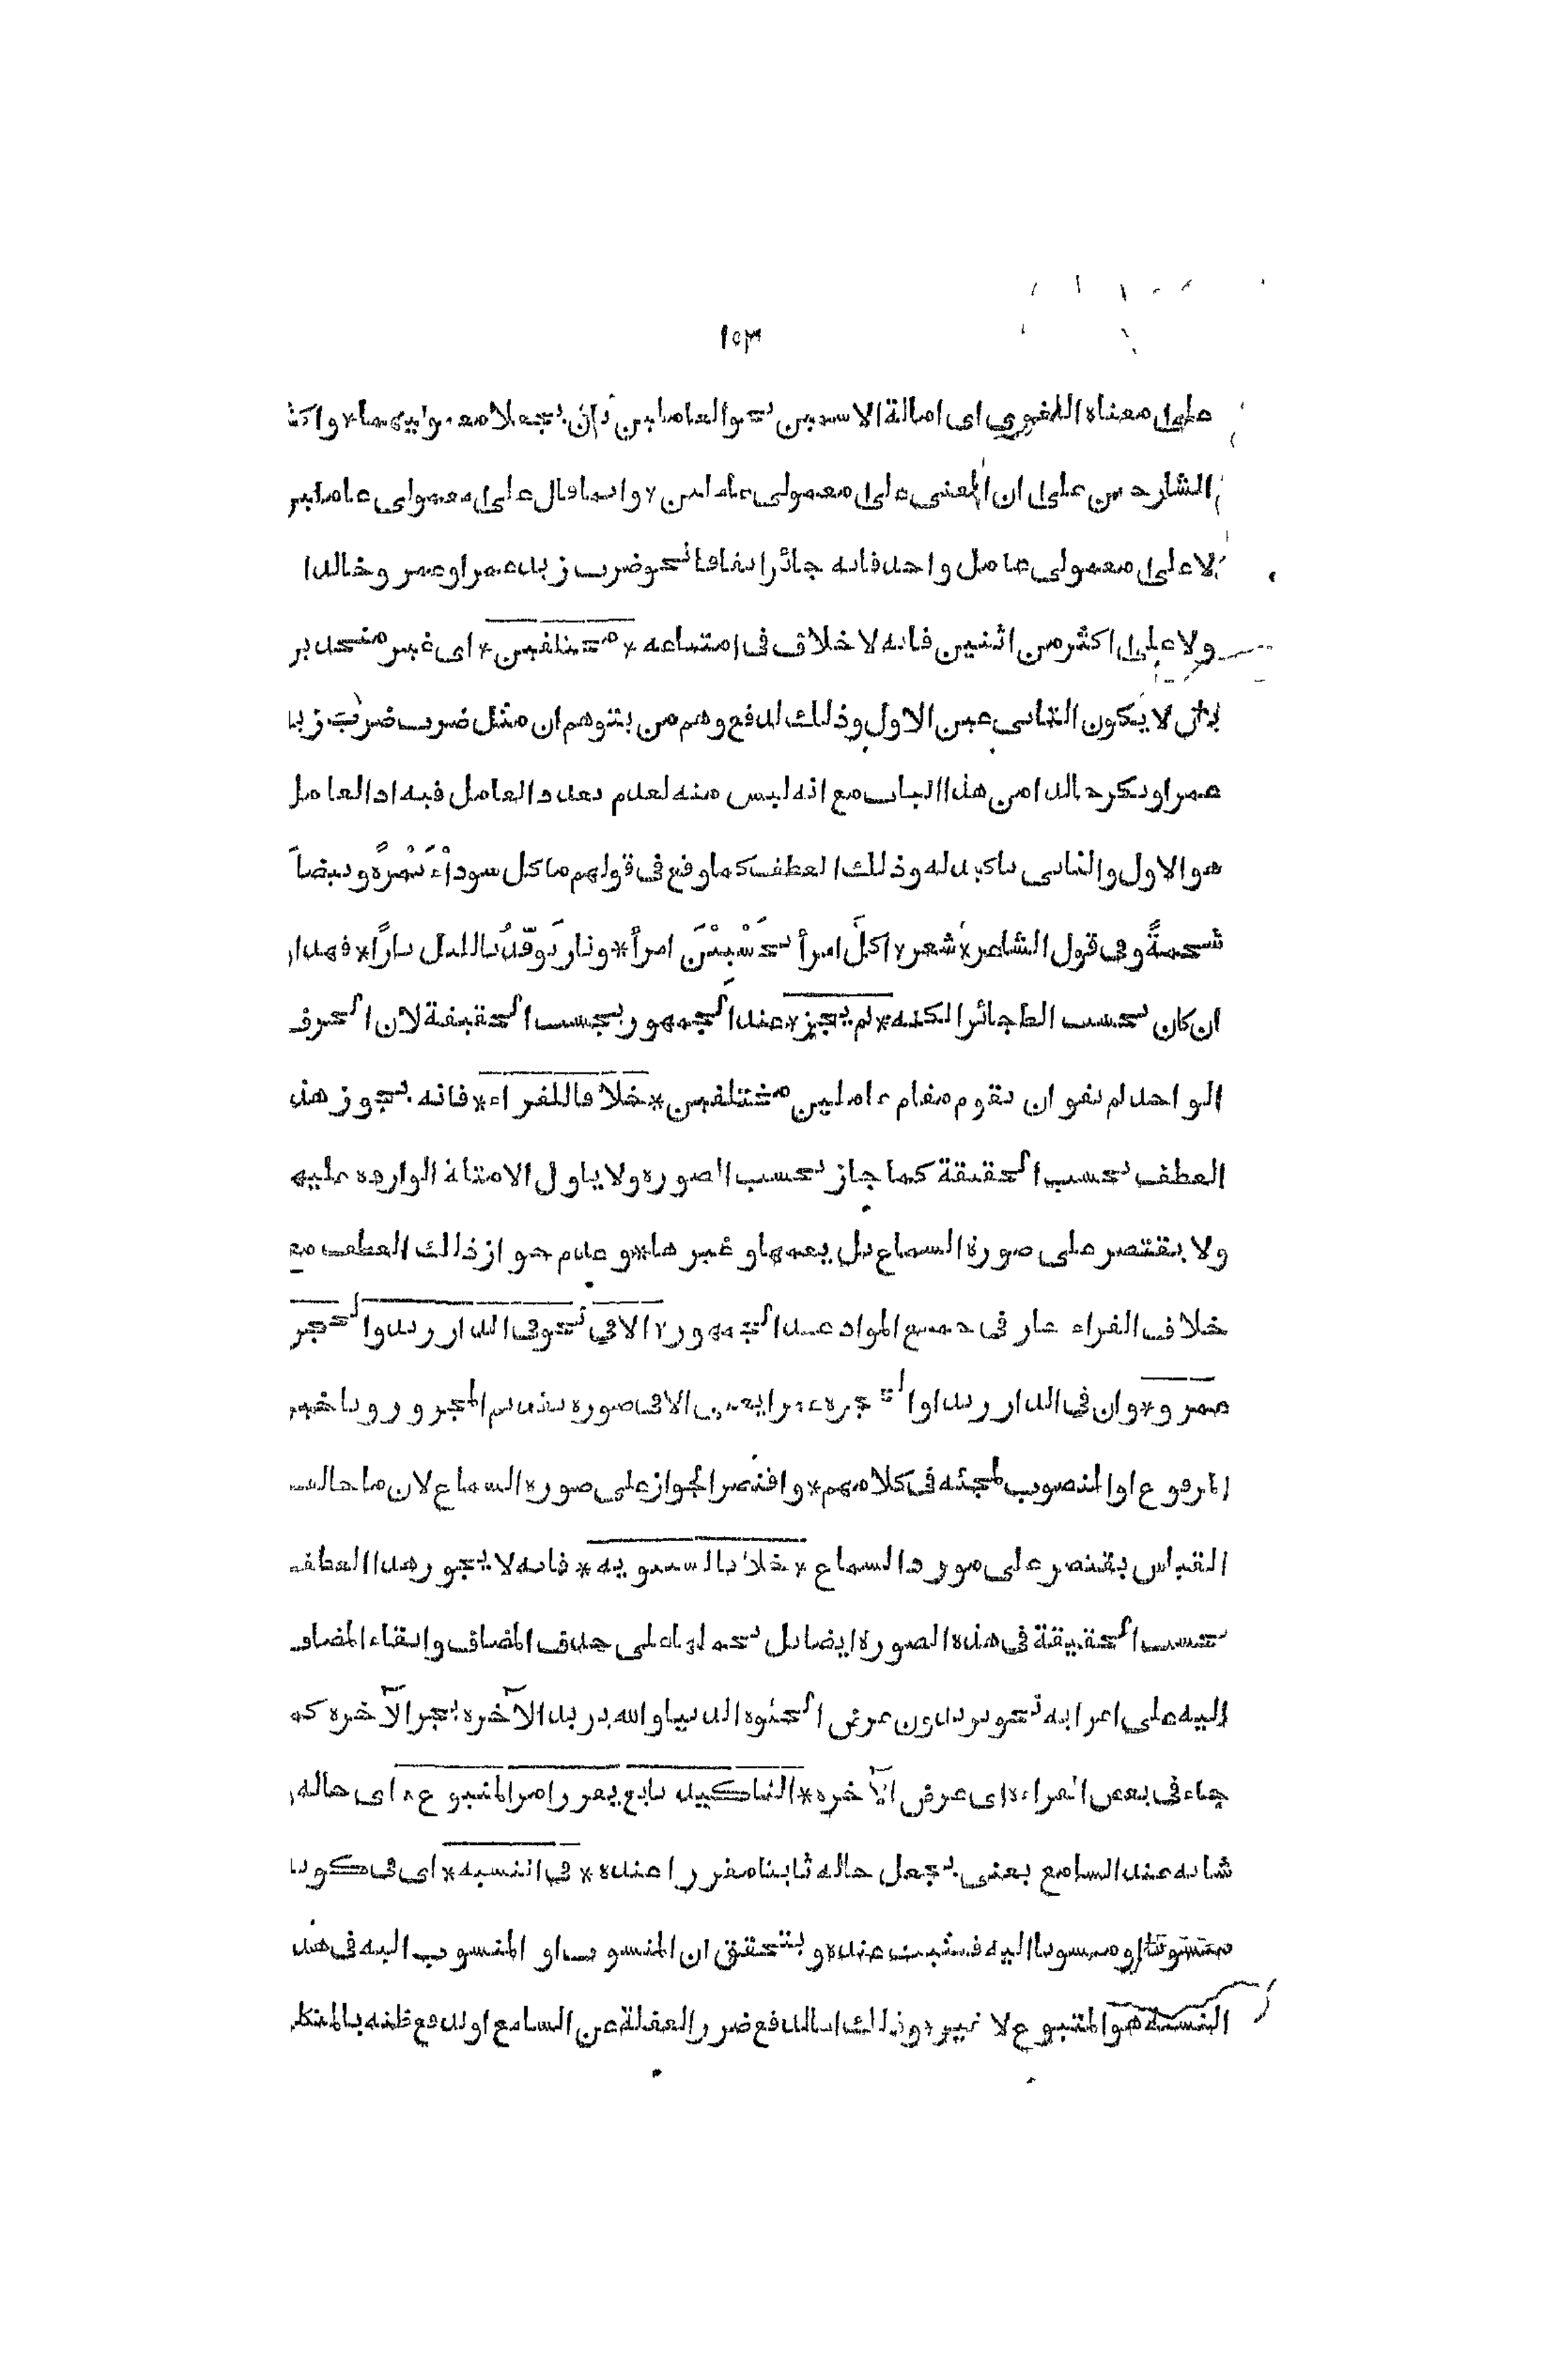 ١٥٣
على معناه اللغوي اى امالة الاسمين نحو العاملين بان يجعلا معمولیهما * واكثر
الشارحین على ان المعنى على معمولى عاملین * وانما قال على معمولى عاملین
لا على معمولى عامل واحد فانه جائز اتفاقا نحو ضرب زید عمرا وعمر وخالدا
ولا على اكثر من اثنین فانه لا خلاف فى امتناعه * مختلفین * اى غیر متحدین
بان لا یكون الثانى عین الاول وذلك لدفع وهم من یتوهم ان مثل ضرب ضرب زید
عمرا وبكر خالدا من هذا الباب مع انه لیس منه لعدم تعدد العامل فیه اذ العامل
هو الاول والثانى تاكید له وذلك العطف كما وقع فى قولهم ما كل سوداءَ تَمْرَةً وبیضاَ
شحمةً وفى قول الشاعر * شعر * اكلَّ امرأ تَحْسَبِیْنَ امرأً * ونارٍ توقّدُ باللیل نارًا * فهذا
ان كان بحسب الظ جائزا لكنه * لم یجز * عند الجمهور بحسب الحقیقة لان الحرف
الواحد لم یقو ان یقوم مقام عاملین مختلفین * خلافا للفراء * فانه یجوز هذ
العطف بحسب الحقیقة كما جاز بحسب الصورة ولا یاول الامثلة الواردة علیه
ولا یقتصر على صورة السماع بل یعمها وغیرها * وعدم جواز ذلك العطف مع
خلاف الفراء جار فى جمیع المواد عند الجمهور * الا فى نحو فى الدار زید والحجرة
عمرو * وان فى الدار زیدا والحجرة عمرا یعنى الا فى صورة تقدیم المجرور وتاخیر
المرفوع او المنصوب لمجیئه فى كلامهم * واقتصر الجواز على صورة السماع لان ما خالف
القیاس یقتصر على مورد السماع * خلافا لسیبویه * فانه لا یجوز هذا العطف
بحسب الحقیقة فى هذه الصورة ایضا بل یحملها على حذف المضاف وابقاء المضاف
الیه على اعرابه نحو تریدون عرض الحیوة الدنیا والله یرید الآخرة بجر الآخرة كما
جاء فى بعض القراءة اى عرض الآخرة * التاكید تابع یقرر امر المتبوع * اى حاله
شانه عند السامع یعنى یجعل حاله ثابتا مقررا عنده * فى النسبة * اى فى كونه
منسوبا او منسوبا الیه فیثبت عنده ویتحقق ان المنسوب او المنسوب الیه فى هذ
النسبة هو المتبوع لا غیر وذلك اما لدفع ضرر الغفلة عن السامع او لدفع ظنه بالمتكلم